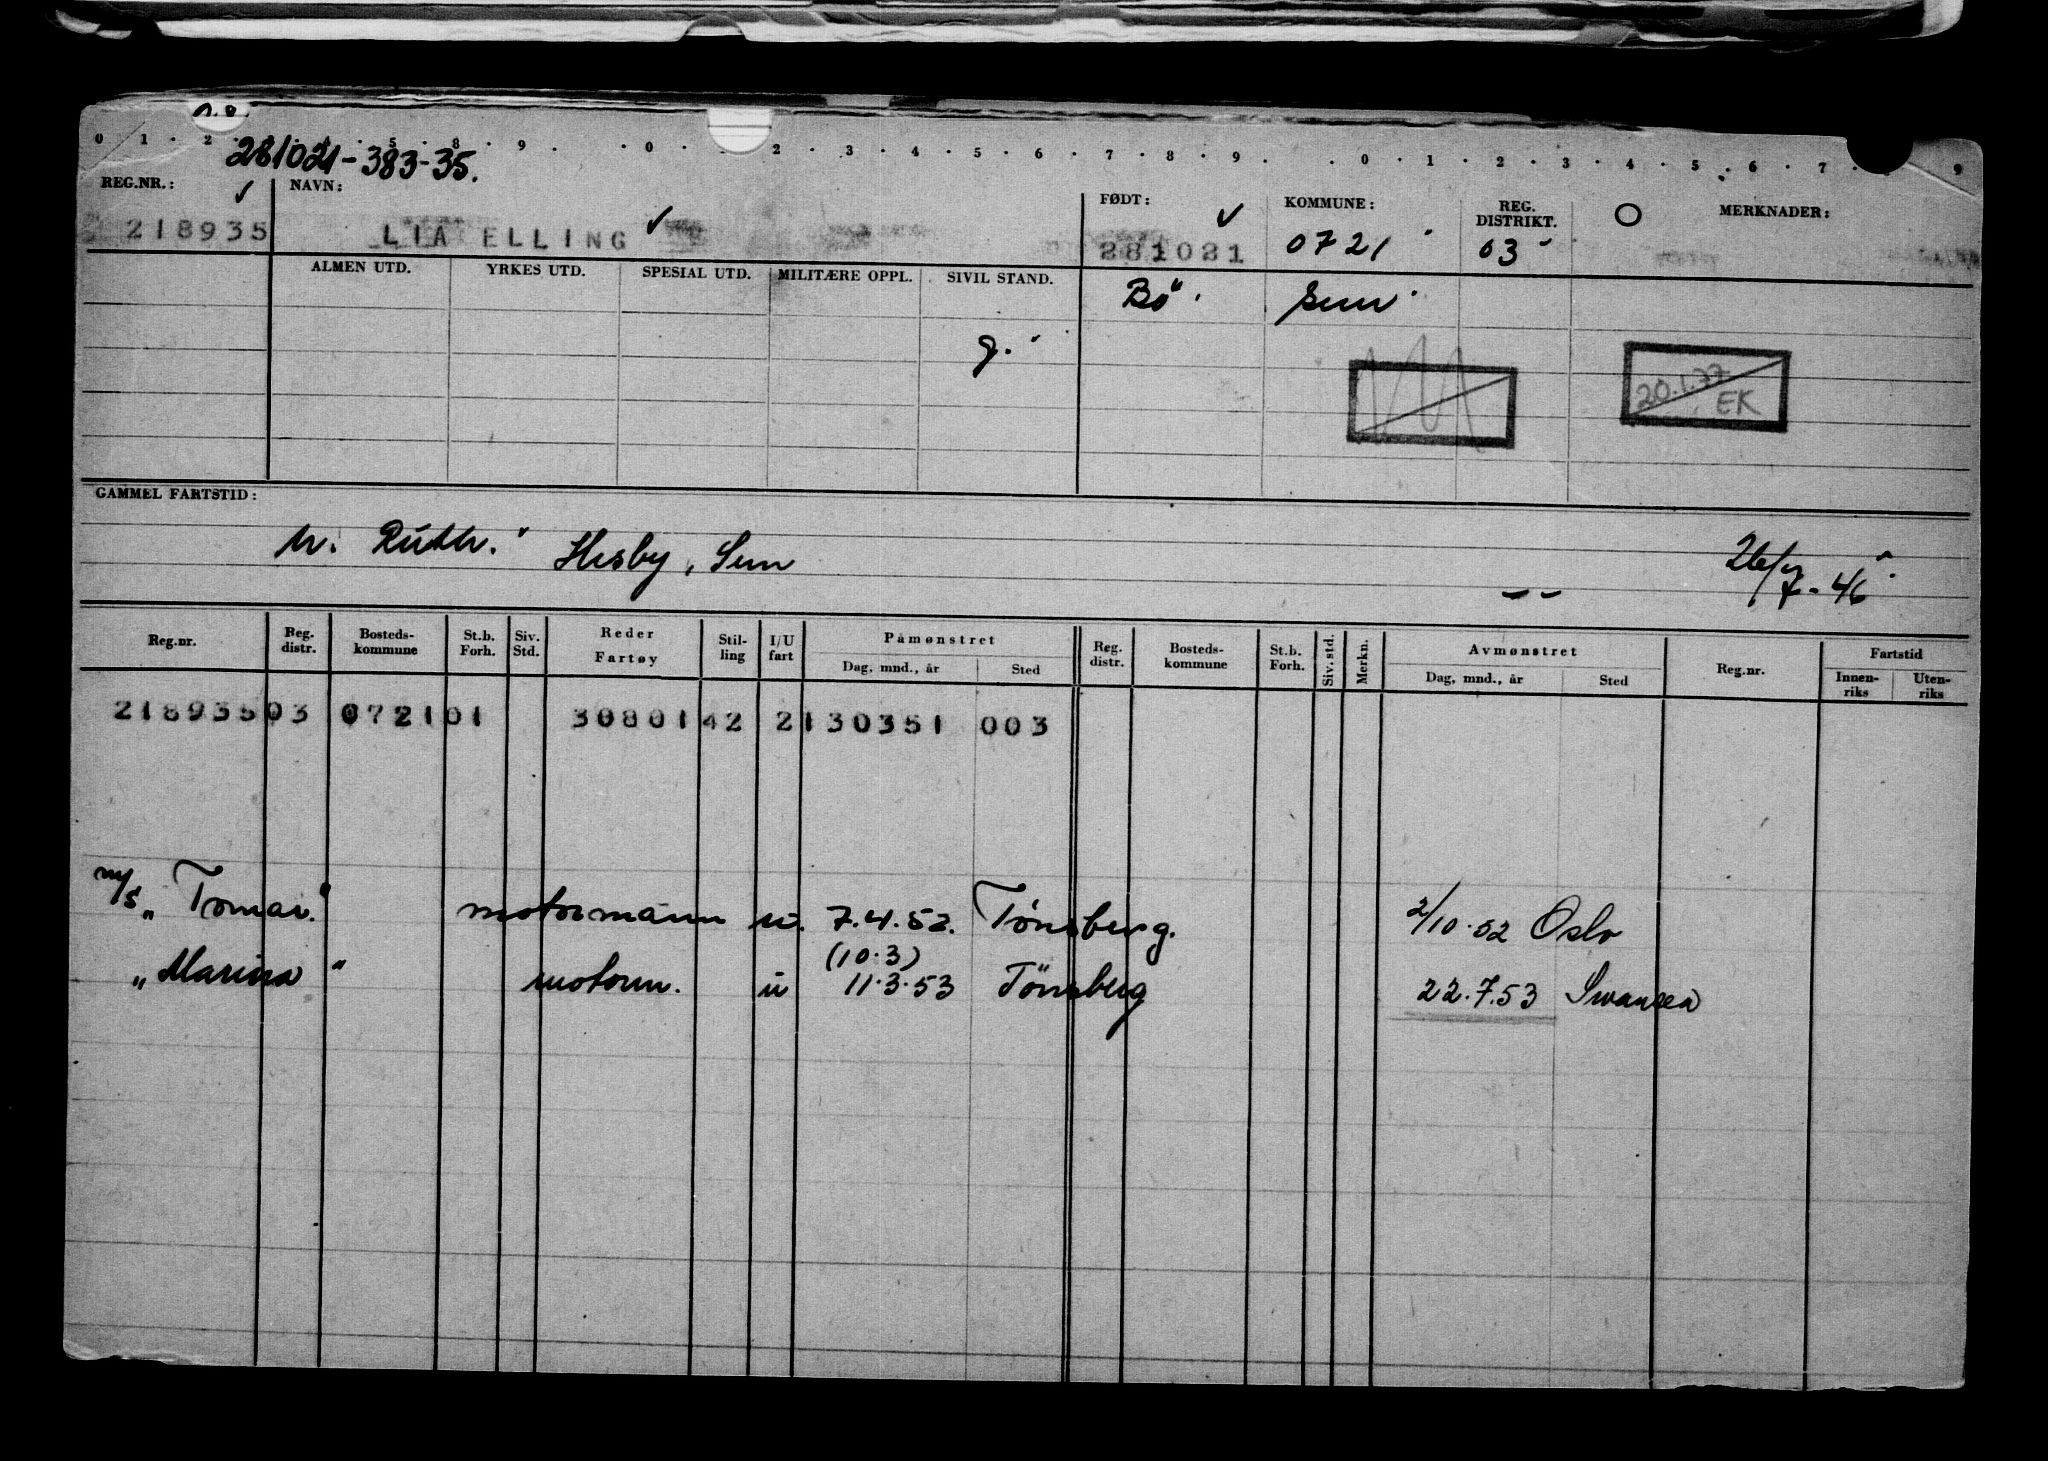 0 1 . 2 5 . 8 . 9 . . 0 . 2 . 3 . 4 . 5 . 6 . 7 . 8 . 9 . . 0 . 1 . 2 . 3 . 4 . 5 . 6 . 7 . 9
281021-383-35.
REG.NR.: NAVN: FØDT: KOMMUNE: REG. DISTRIKT. MERKNADER:
218935 LIA ELLING 281021 0721 03
ALMEN UTD. YRKES UTD. SPESIAL UTD. MILITÆRE OPPL. SIVIL STAND.
Bö. Sem
g.
20.1.77 EK
GAMMEL FARTSTID:
h. Ruth. Hesby, Sem
26/7-46
Reg.nr. Reg. distr. Bosteds-kommune St.b. Forh. Siv. Std. Reder Fartøy Stil-ling I/U fart Påmønstret Dag, mnd., år Sted Reg. distr. Bosteds-kommune St.b. Forh. Siv. std. Merkn. Avmønstret Dag, mnd., år Sted Reg.nr. Fartstid Innen-riks Uten-riks
218935 03 0721 01 30801 42 2 130351 003
m/s „Tomar." motormann u. 7.4.52. Tønsberg. 2/10.52 Oslo
(10.3)
„Marina" motorm. u 11.3.53 Tönsberg 22.7.53 Swansea